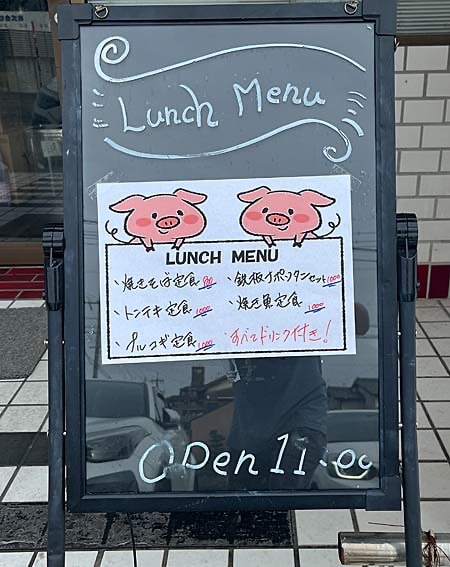 Lunch Menu
LUNCH MENU
・焼きそば定食 900
・トンテキ定食 1000
・プルコギ定食 1000
・鉄板ナポリタンセット 1000
・焼き魚定食 1000
すべてドリンク付き!
OPen 11:00